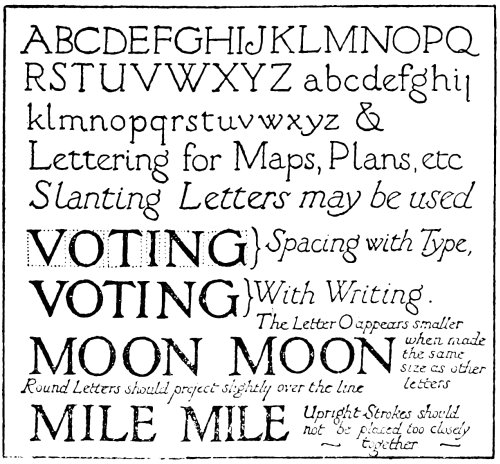 ABCDEFGHIJKLMNOPQ
RSTUVWXYZ abcdefghij
klmnopqrstuvwxyz &
Lettering for Maps, Plans, etc
Slanting Letters may be used
VOTING} Spacing with Type,
VOTING} With Writing.
The Letter O appears smaller
when made
the same
size as other
letters
MOON MOON
Round Letters should project slightly over the line
MILE MILE
Upright Strokes should
not be placed too closely
together